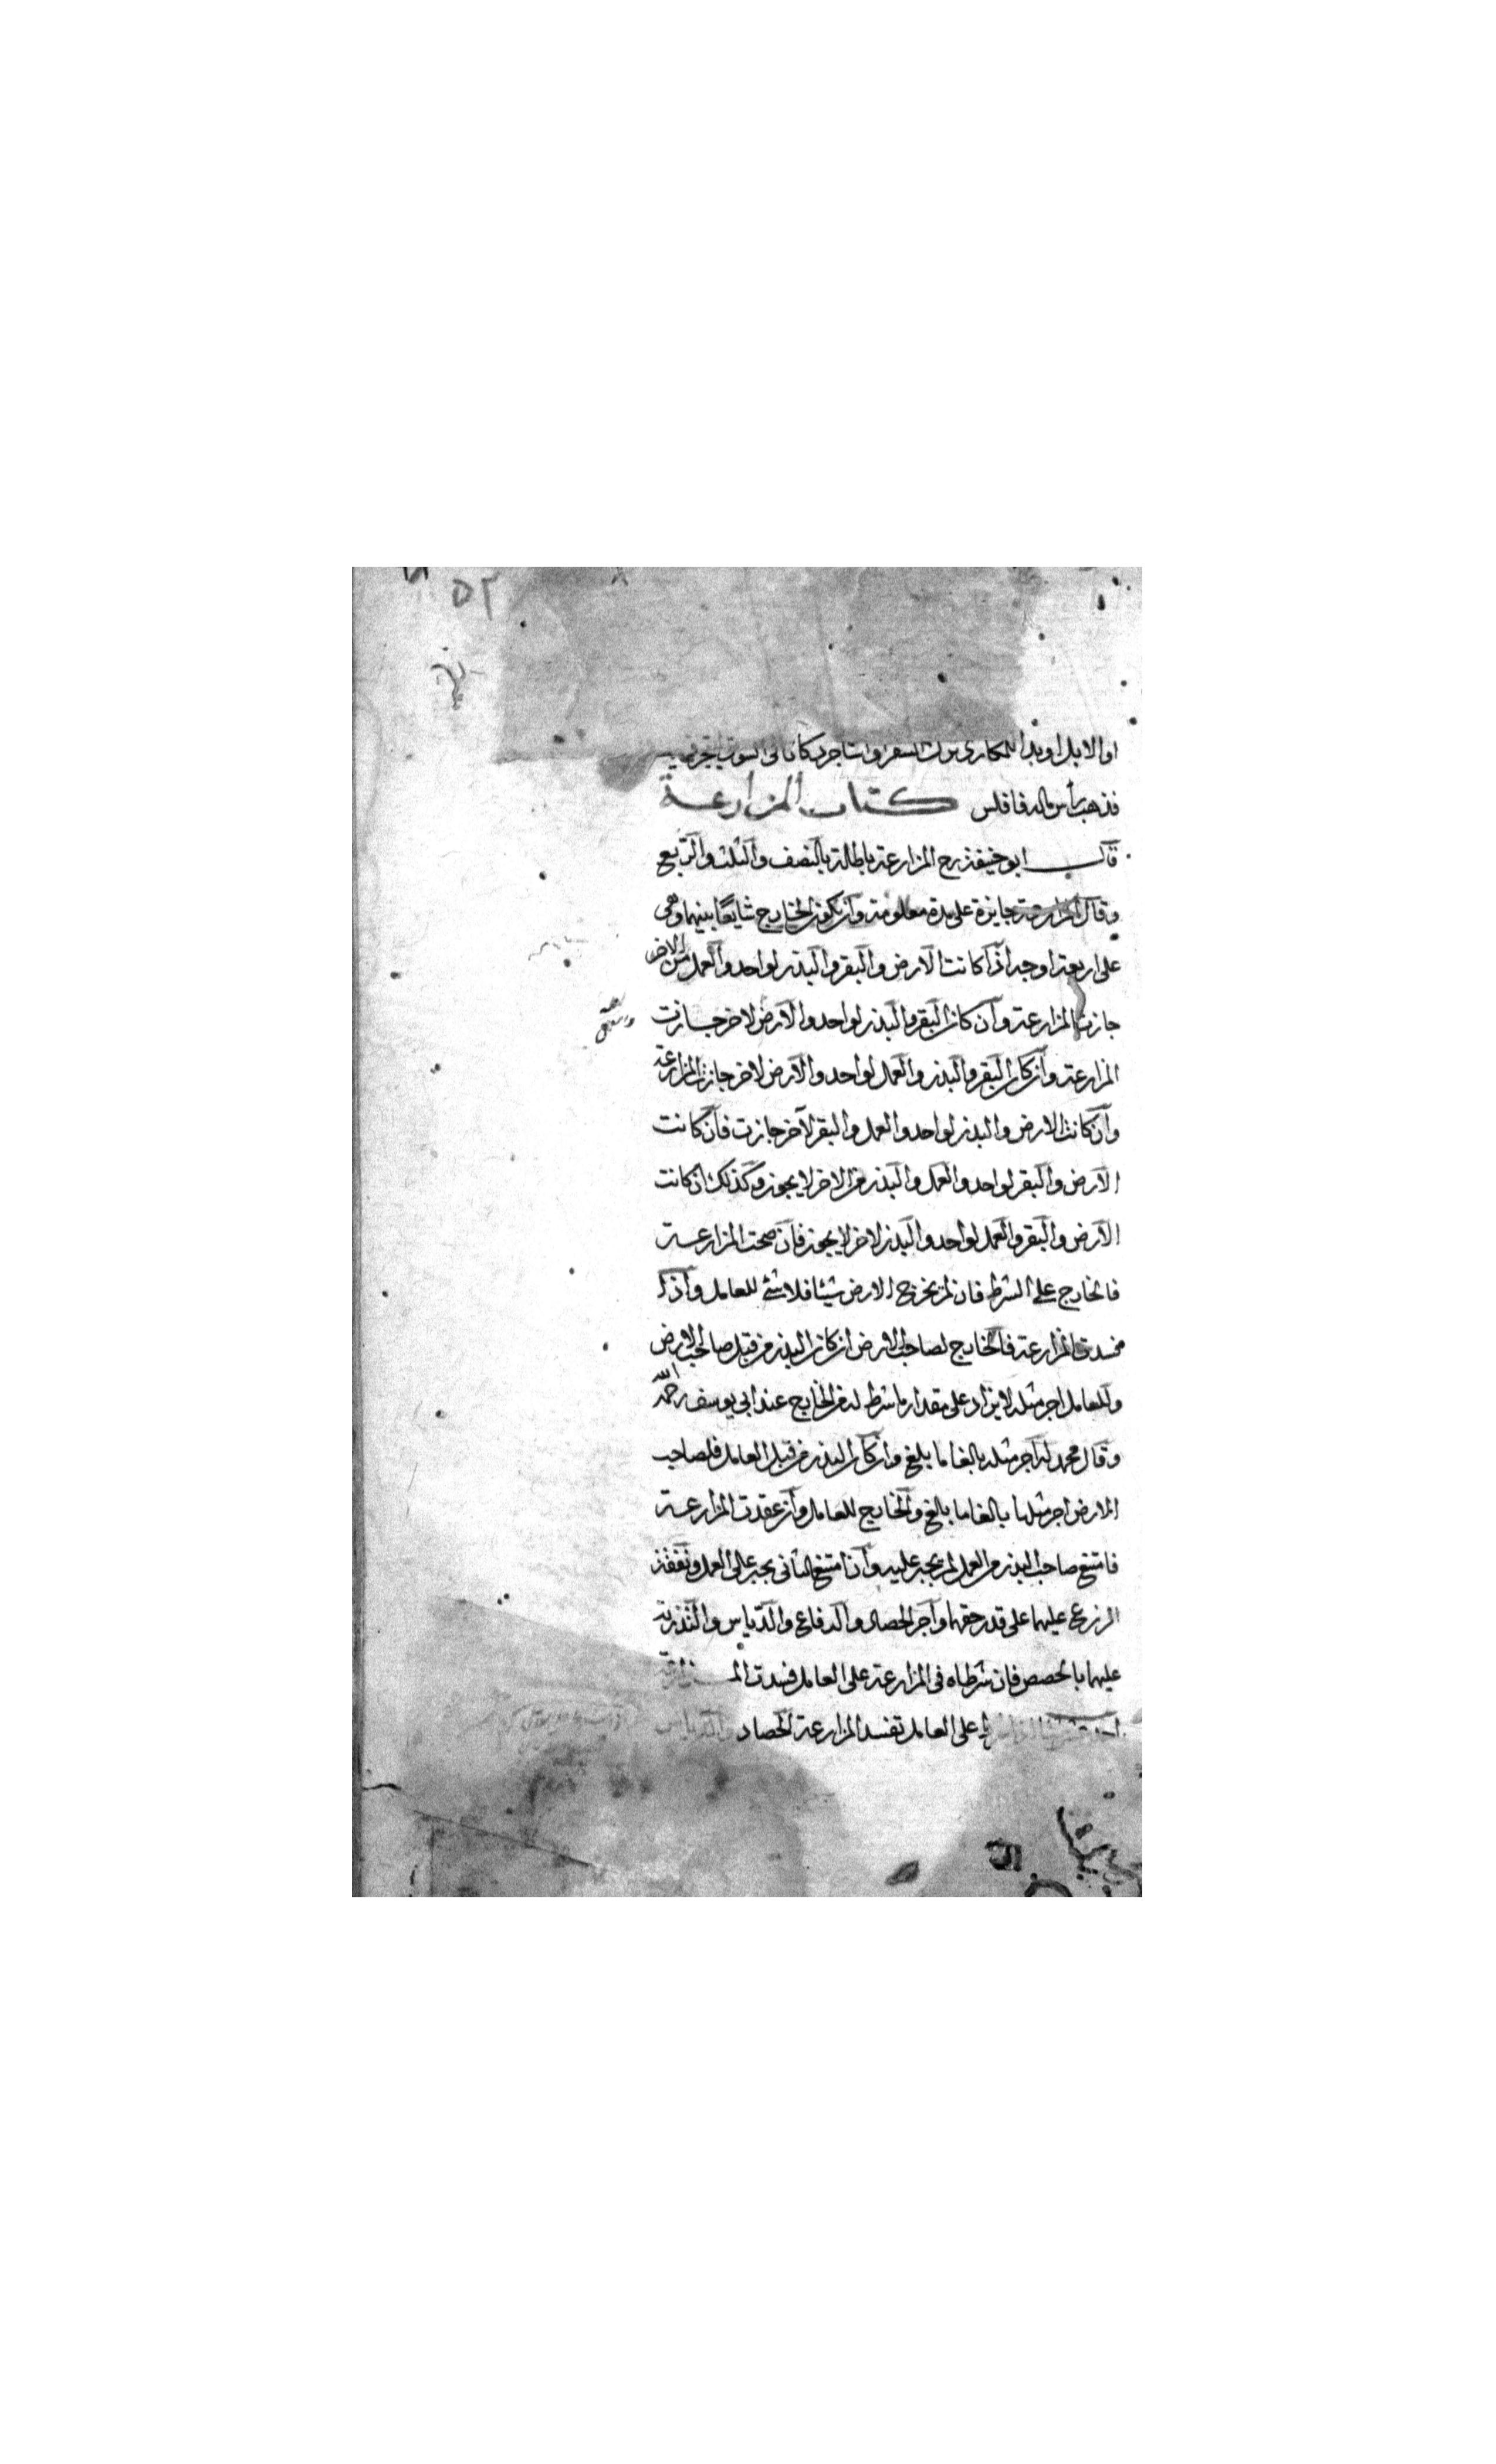 ٥٢
او الابل او بدا للمكارى ترك السفر او استاجر دكانا فى السوق ليتجر فيه
فذهب رأس ماله فافلس كتاب المزارعة
قال ابو حنيفة رح المزارعة باطلة بالنصف والثلث والربع
وقالا المزارعة جايزة على مدة معلومة وان يكون الخارج شايعًا بينهما وهى
على اربعة اوجه اذا كانت الارض والبقر والبذر لواحد والعمل من الاخر
جازت المزارعة وان كان البقر والبذر لواحد والارض لاخر جازت
المزارعة وان كان البقر والبذر والعمل لواحد والارض لاخر جازت المزارعة
وان كانت الارض والبذر لواحد والعمل والبقر لآخر جازت فان كانت
الارض والبقر لواحد والعمل والبذر من الاخر لا يجوز وكذلك ان كانت
الارض والبقر والعمل لواحد والبذر لاخر لا يجوز فان صحت المزارعة
فالخارج على الشرط فان لم يخرج الارض شيئا فلا شئ للعامل واذا
فسدت المزارعة فالخارج لصاحب الارض ان كان البذر من قبل صاحب الارض
وللعامل اجر مثله لا يزاد على مقدار ما شرط له من الخارج عند ابى يوسف رحمه الله
وقال محمد له اجر مثله بالغا ما بلغ وان كان البذر من قبل العامل فلصاحب
الارض اجر مثلها بالغا ما بالغ والخارج للعامل وان عقدت المزارعة
فامتنع صاحب البذر من العمل لم يجبر عليه وان امتنع الثانى يجبر على العمل ونفقة
الزرع عليهما على قدر حقهما واجر الحصاد والدفاع والدياس والتذرية
عليهما بالحصص فان شرطاه فى المزارعة على العامل فسدت المزارعة
على العامل تفسد المزارعة الحصاد والدياس